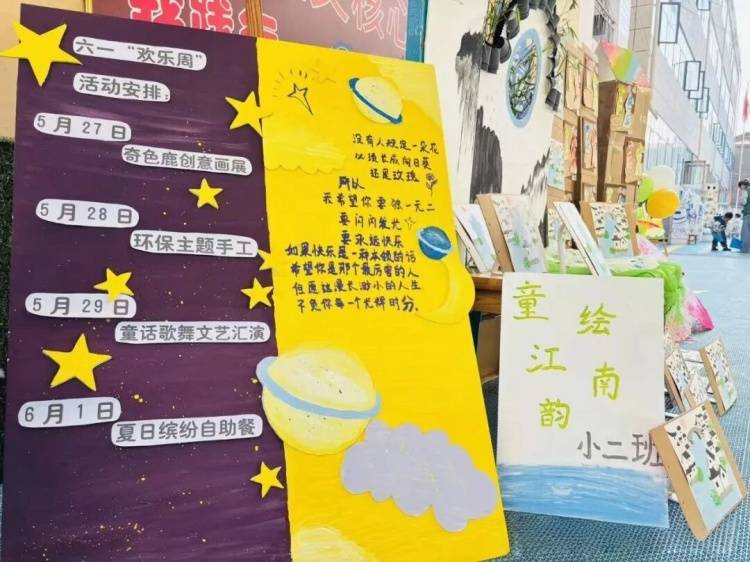 六一“欢乐周”
活动安排:
5月27日
奇色鹿创意画展
5月28日
环保主题手工
5月29日
童话歌舞文艺汇演
6月1日
夏日缤纷自助餐
没有人规定一朵花
必须长成向日葵
还是玫瑰
所以
希望你
要闪闪发光
要永远快乐
如果快乐是一种本领的话
希望你是那个最厉害的人
但愿这漫长渺小的人生
不负你每一个光辉时分。
童绘
江南
韵
小二班